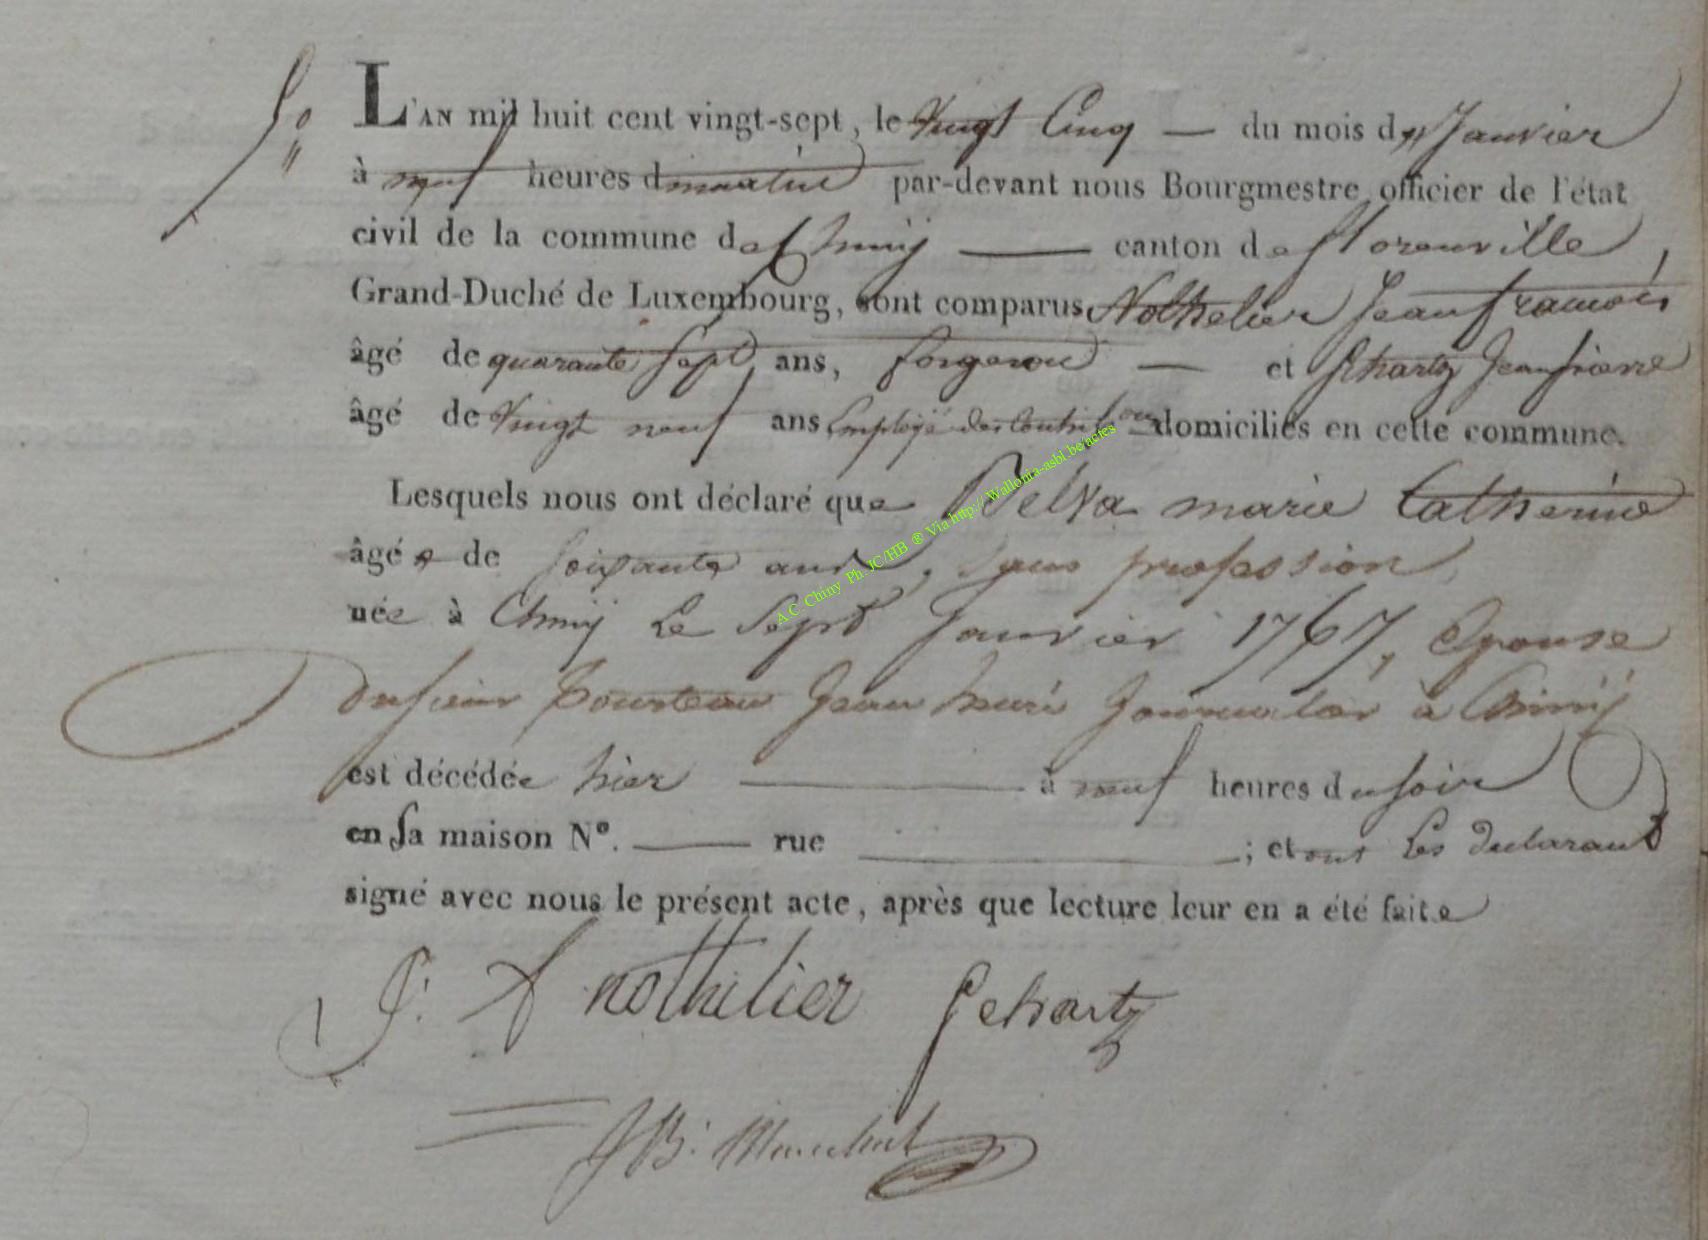 L'AN mil huit cent vingt-sept, le vingt Cinq — du mois de Janvier
à neuf heures du matin par-devant nous Bourgmestre officier de l'état
civil de la commune de Chiny — canton de florenville,
Grand-Duché de Luxembourg, sont comparus Nothelier Jean françois
âgé de quarante Sept ans, forgeron — et Schartz Jean pierre
âgé de vingt neuf ans Employé des Contribons domiciliés en cette commune.
Lesquels nous ont déclaré que Delva marie Catherine
âgée de soixante ans, Sans profession
née à Chiny Le Sept Janvier 1767, Epouse
du sieur Pourteau Jean henri Journalier à Chiny
est décédée hier — à neuf heures du soir
en sa maison N°. — rue — ; et ont Les declarant
signé avec nous le présent acte, après que lecture leur en a été faite
J: f nothelier Schartz
JB: Marechal
A C Chiny Ph. JC/HB ® Via http:// Wallonia-asbl.be/actes